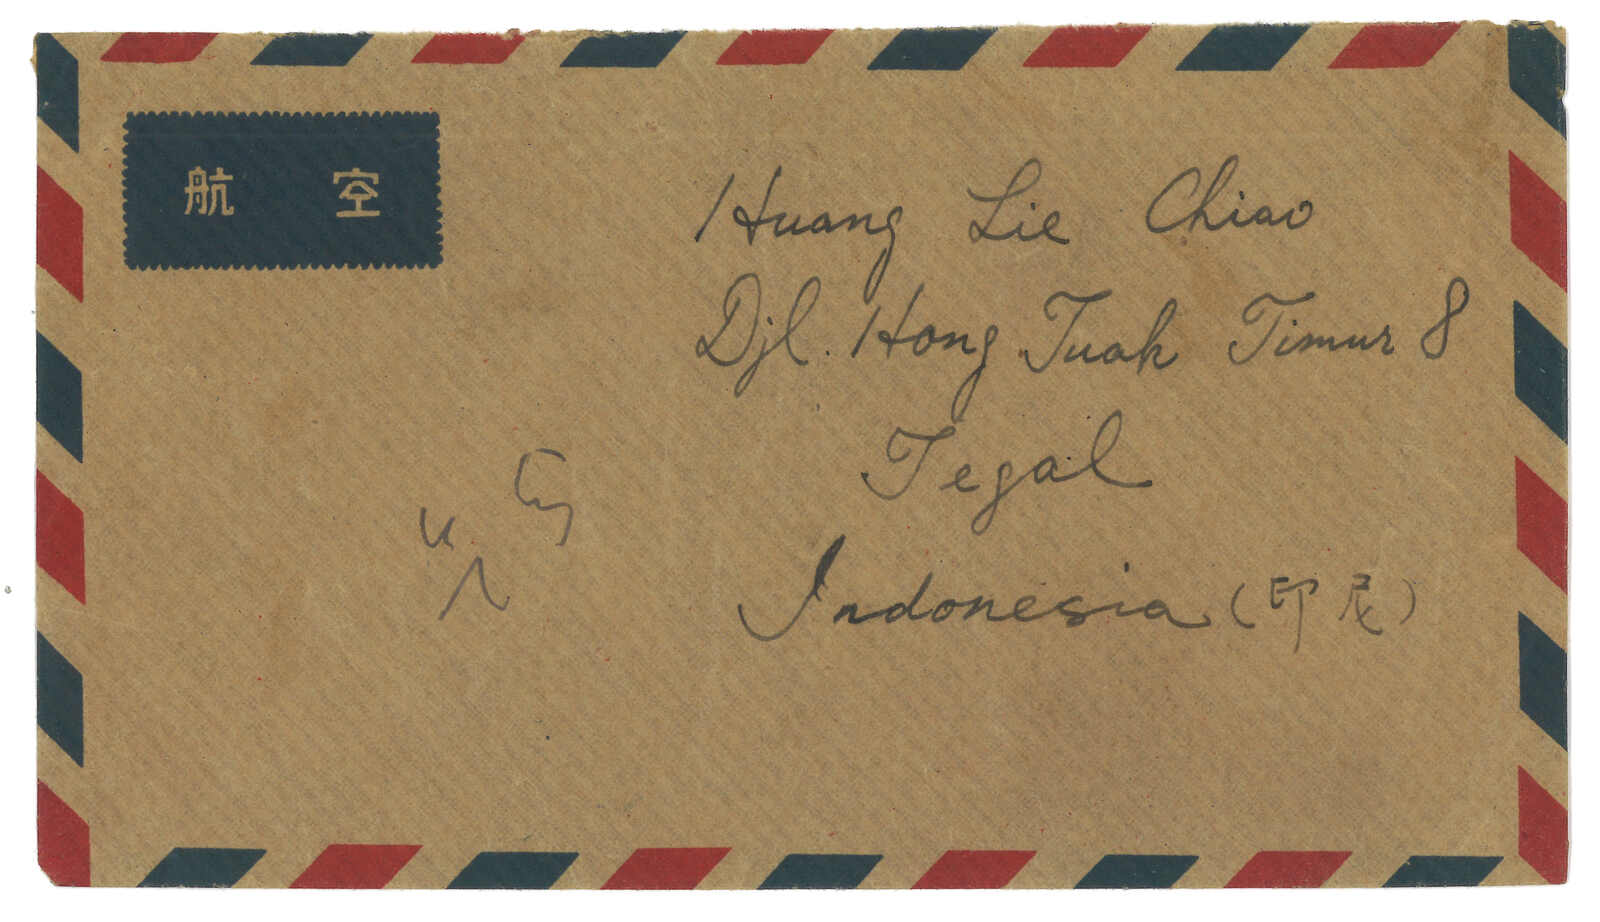 航 空
Huang Lie Chiao
Djl. Hong Tuah Timur 8
Tegal
Indonesia (印尼)